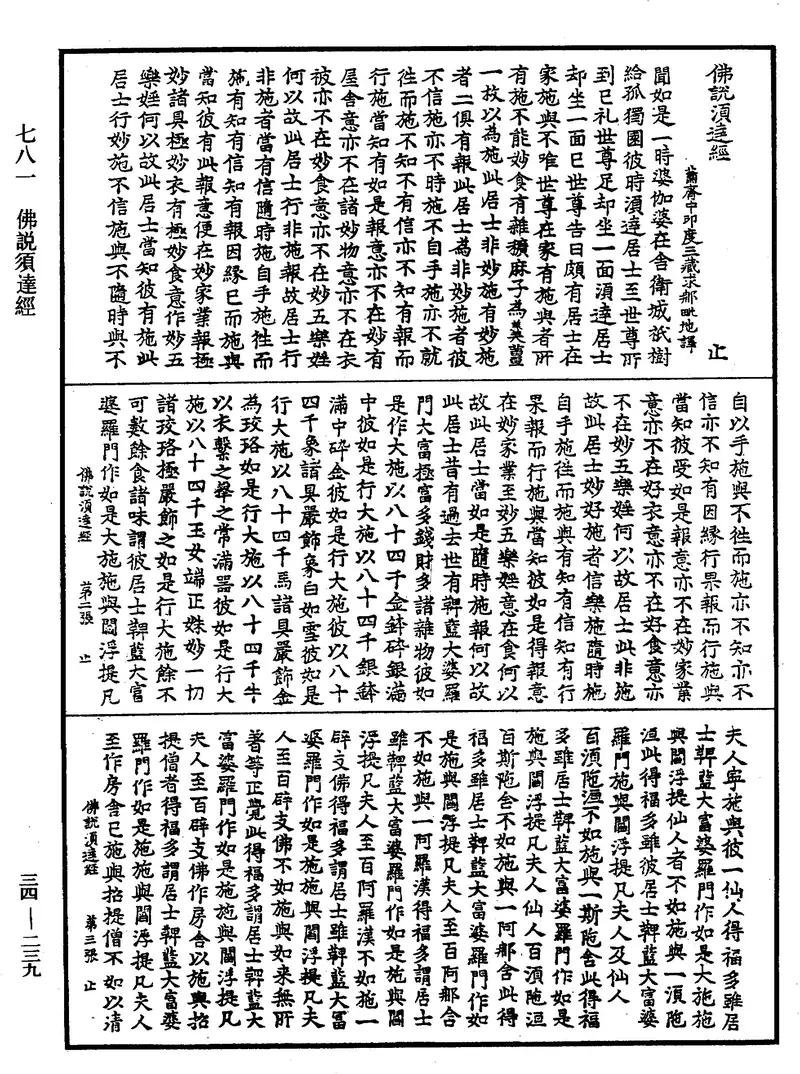 佛說須達經
蕭齊中印度三藏求那毗地譯 止
聞如是一時婆伽婆在舍衛城祇樹
給孤獨園彼時須達居士至世尊所
到已礼世尊足却坐一面須達居士
却坐一面已世尊告曰頗有居士在
家施與不唯世尊在家有施與者所
有施不能妙食有雜穬麻子為羹薑
一枚以為施此居士非妙施有妙施
者二俱有報此居士為非妙施者彼
不信施亦不時施不自手施亦不就
徃而施不知不有信亦不知有報而
行施當知有如是報意亦不在妙有
屋舍意亦不在諸妙物意亦不在衣
被亦不在妙食意亦不在妙五樂婬
何以故此居士行非施報故居士行
非施者當有信隨時施自手施徃而
施有知有信知有報因緣已而施與
當知彼有此報意便在妙家業報極
妙諸具極妙衣有極妙食意作妙五
樂婬何以故此居士當知彼有施此
居士行妙施不信施與不隨時與不
自以手施與不徃而施亦不知亦不
信亦不知有因緣行果報而行施與
當知彼受如是報意亦不在妙家業
意亦不在好衣意亦不在好食意亦
不在妙五樂婬何以故居士此非施
故此居士妙好施者信樂施隨時施
自手施徃而施與有知有信知有行
果報而行施與當知彼如是得報意
在妙家業至妙五樂婬意在食何以
故此居士當如是隨時施報何以故
此居士昔有過去世有鞞藍大婆羅
門大富極富多錢財多諸雜物彼如
是作大施以八十四千金鉢碎銀滿
中彼如是行大施以八十四千銀鉢
滿中碎金彼如是行大施彼以八十
四千象諸具嚴飾象白如雪彼如是
行大施以八十四千馬諸具嚴飾金
為珓珞如是行大施以八十四千牛
以衣繫之犖之常滿器彼如是行大
施以八十四千玉女端正姝妙一切
諸珓珞極嚴飾之如是行大施餘不
可數餘食諸味謂彼居士鞞藍大富
婆羅門作如是大施施與閻浮提凡
佛說須達經 第二張 止
夫人寜施與彼一仙人得福多雖居
士鞞藍大富婆羅門作如是大施施
與閻浮提仙人者不如施與一須陁
洹此得福多雖彼居士鞞藍大富婆
羅門施與閻浮提凡夫人及仙人
百須陁洹不如施與一斯陁含此得福
多雖居士鞞藍大富婆羅門作如是
施與閻浮提凡夫人仙人百須陁洹
百斯陁含不如施與一阿那含此得
福多雖居士鞞藍大富婆羅門作如
是施與閻浮提凡夫人至百阿那含
不如施與一阿羅漢得福多謂居士
雖鞞藍大富婆羅門作如是施與閻
浮提凡夫人至百阿羅漢不如施一
辟支佛得福多謂居士雖鞞藍大富
婆羅門作如是施施與閻浮提凡夫
人至百辟支佛不如施與如來無所
著等正覺此得福多謂居士鞞藍大
富婆羅門作如是施施與閻浮提凡
夫人至百辟支佛作房舍以施與招
提僧者得福多謂居士鞞藍大富婆
羅門作如是施施與閻浮提凡夫人
至作房舍已施與招提僧不如以清
佛說須達經 第三張 止
七八一 佛説須達經
三四—二三九